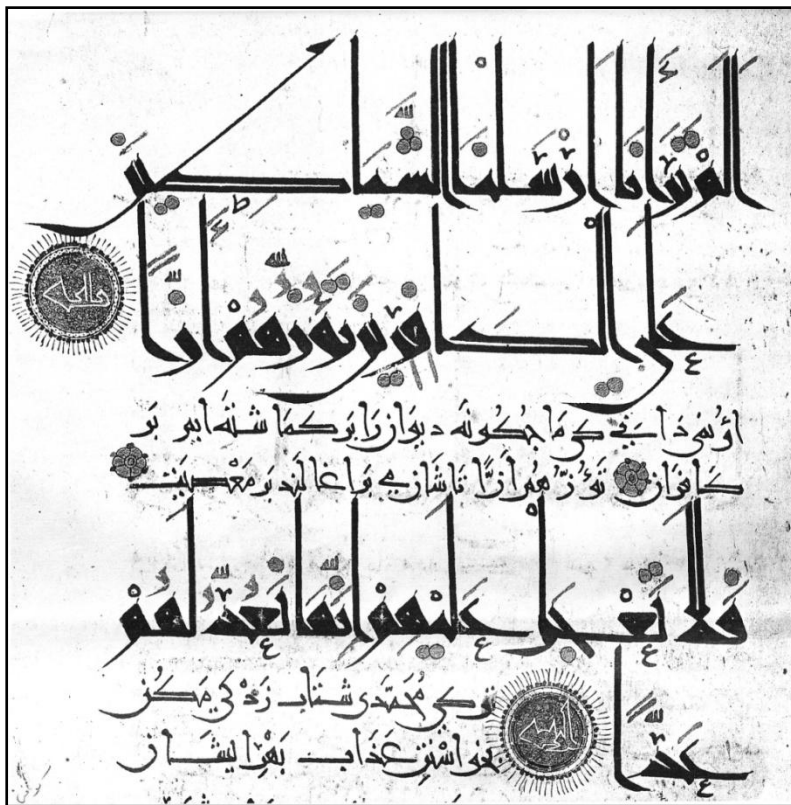 أَلَمْ تَرَ أَنَّا أَرْسَلْنَا الشَّيَاطِينَ
عَلَى الْكَافِرِينَ تَؤُزُّهُمْ أَزًّا
او نمی دانی کی ما چگونه دیوان را بر کماشته ایم بر
کافران تَؤُزُّهُمْ أَزًّا براغالند بر معصیت
فَلَا تَعْجَلْ عَلَيْهِمْ إِنَّمَا نَعُدُّ لَهُمْ
عَدًّا
تو کی محمدی شتاب زدگی مکن
بخواستن عذاب بهر ایشان